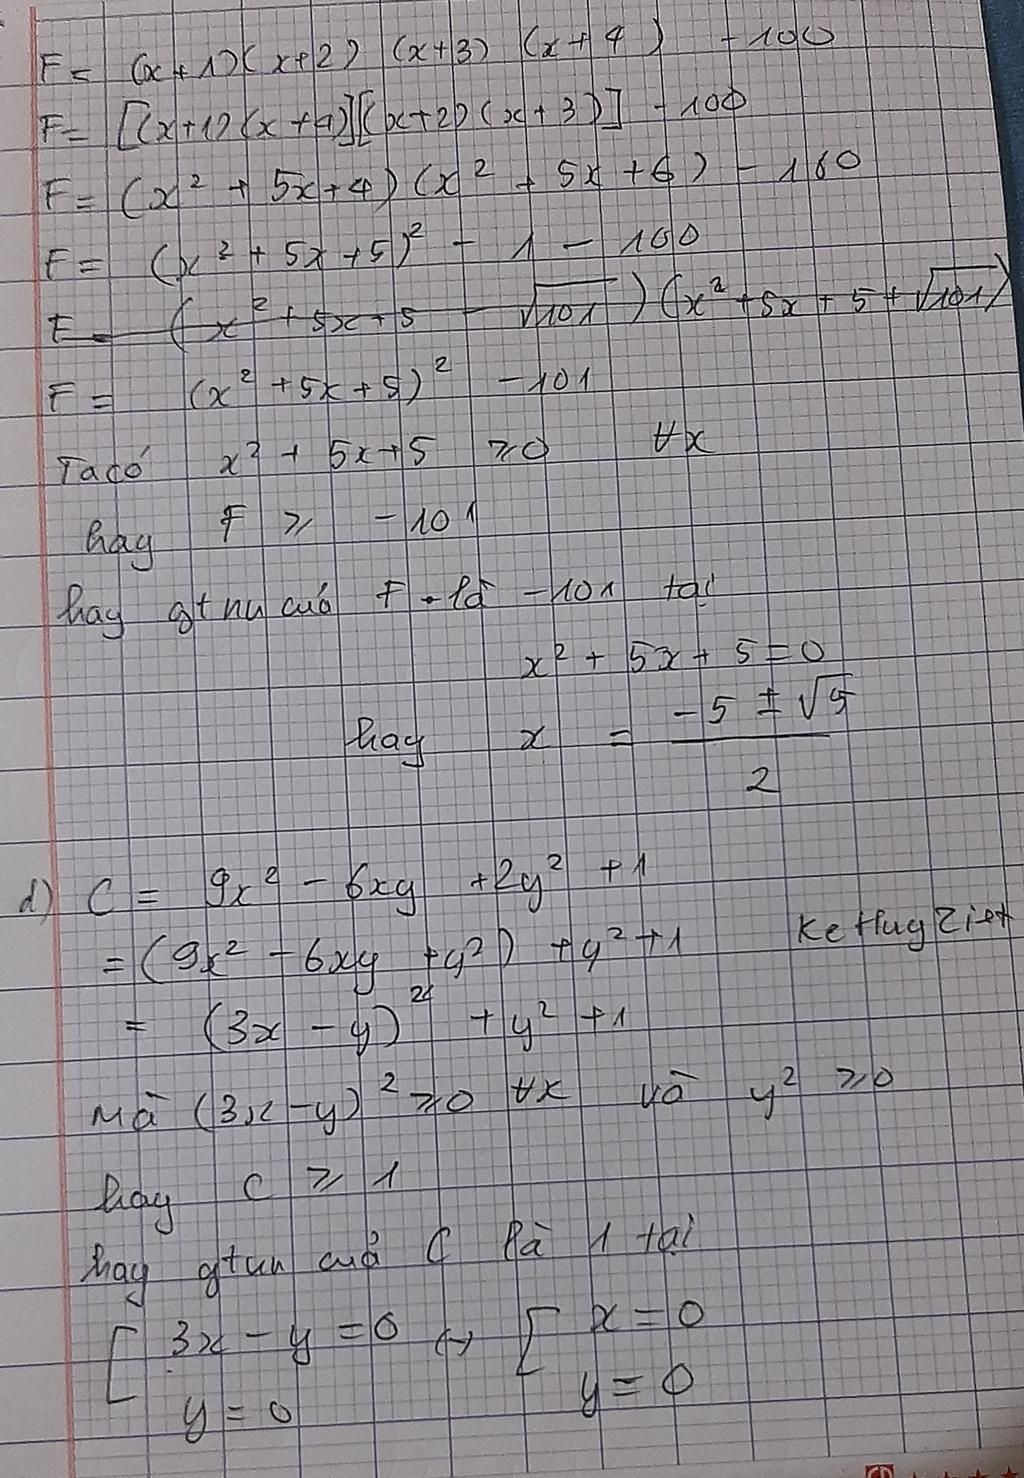 F = (x+1)(x+2) (x+3) (x+4) - 100
F = [(x+1)(x+4)][(x+2)(x+3)] - 100
F = (x² + 5x+4)(x² + 5x+6) - 100
F = (x² + 5x+5)² - 1 - 100
F = (x² + 5x+5 - √101)(x² +5x+5+√101)
F = (x² +5x+5)² -101
Ta có x² + 5x+5 ≥0 ∀x
hay F ≥ -101
hay gtnn của F là -101 tại
x² + 5x + 5 = 0
hay x = (-5 ± √5)/2
d) C = 9x² - 6xy +2y² +1
= (9x² - 6xy +y²) + y² +1
= (3x - y)² + y² +1
Mà (3x - y)² ≥0 ∀x và y² ≥0
hay C ≥ 1
hay gtnn của C là 1 tại
[ 3x - y = 0 ↔ [ x = 0
y = 0 y = 0